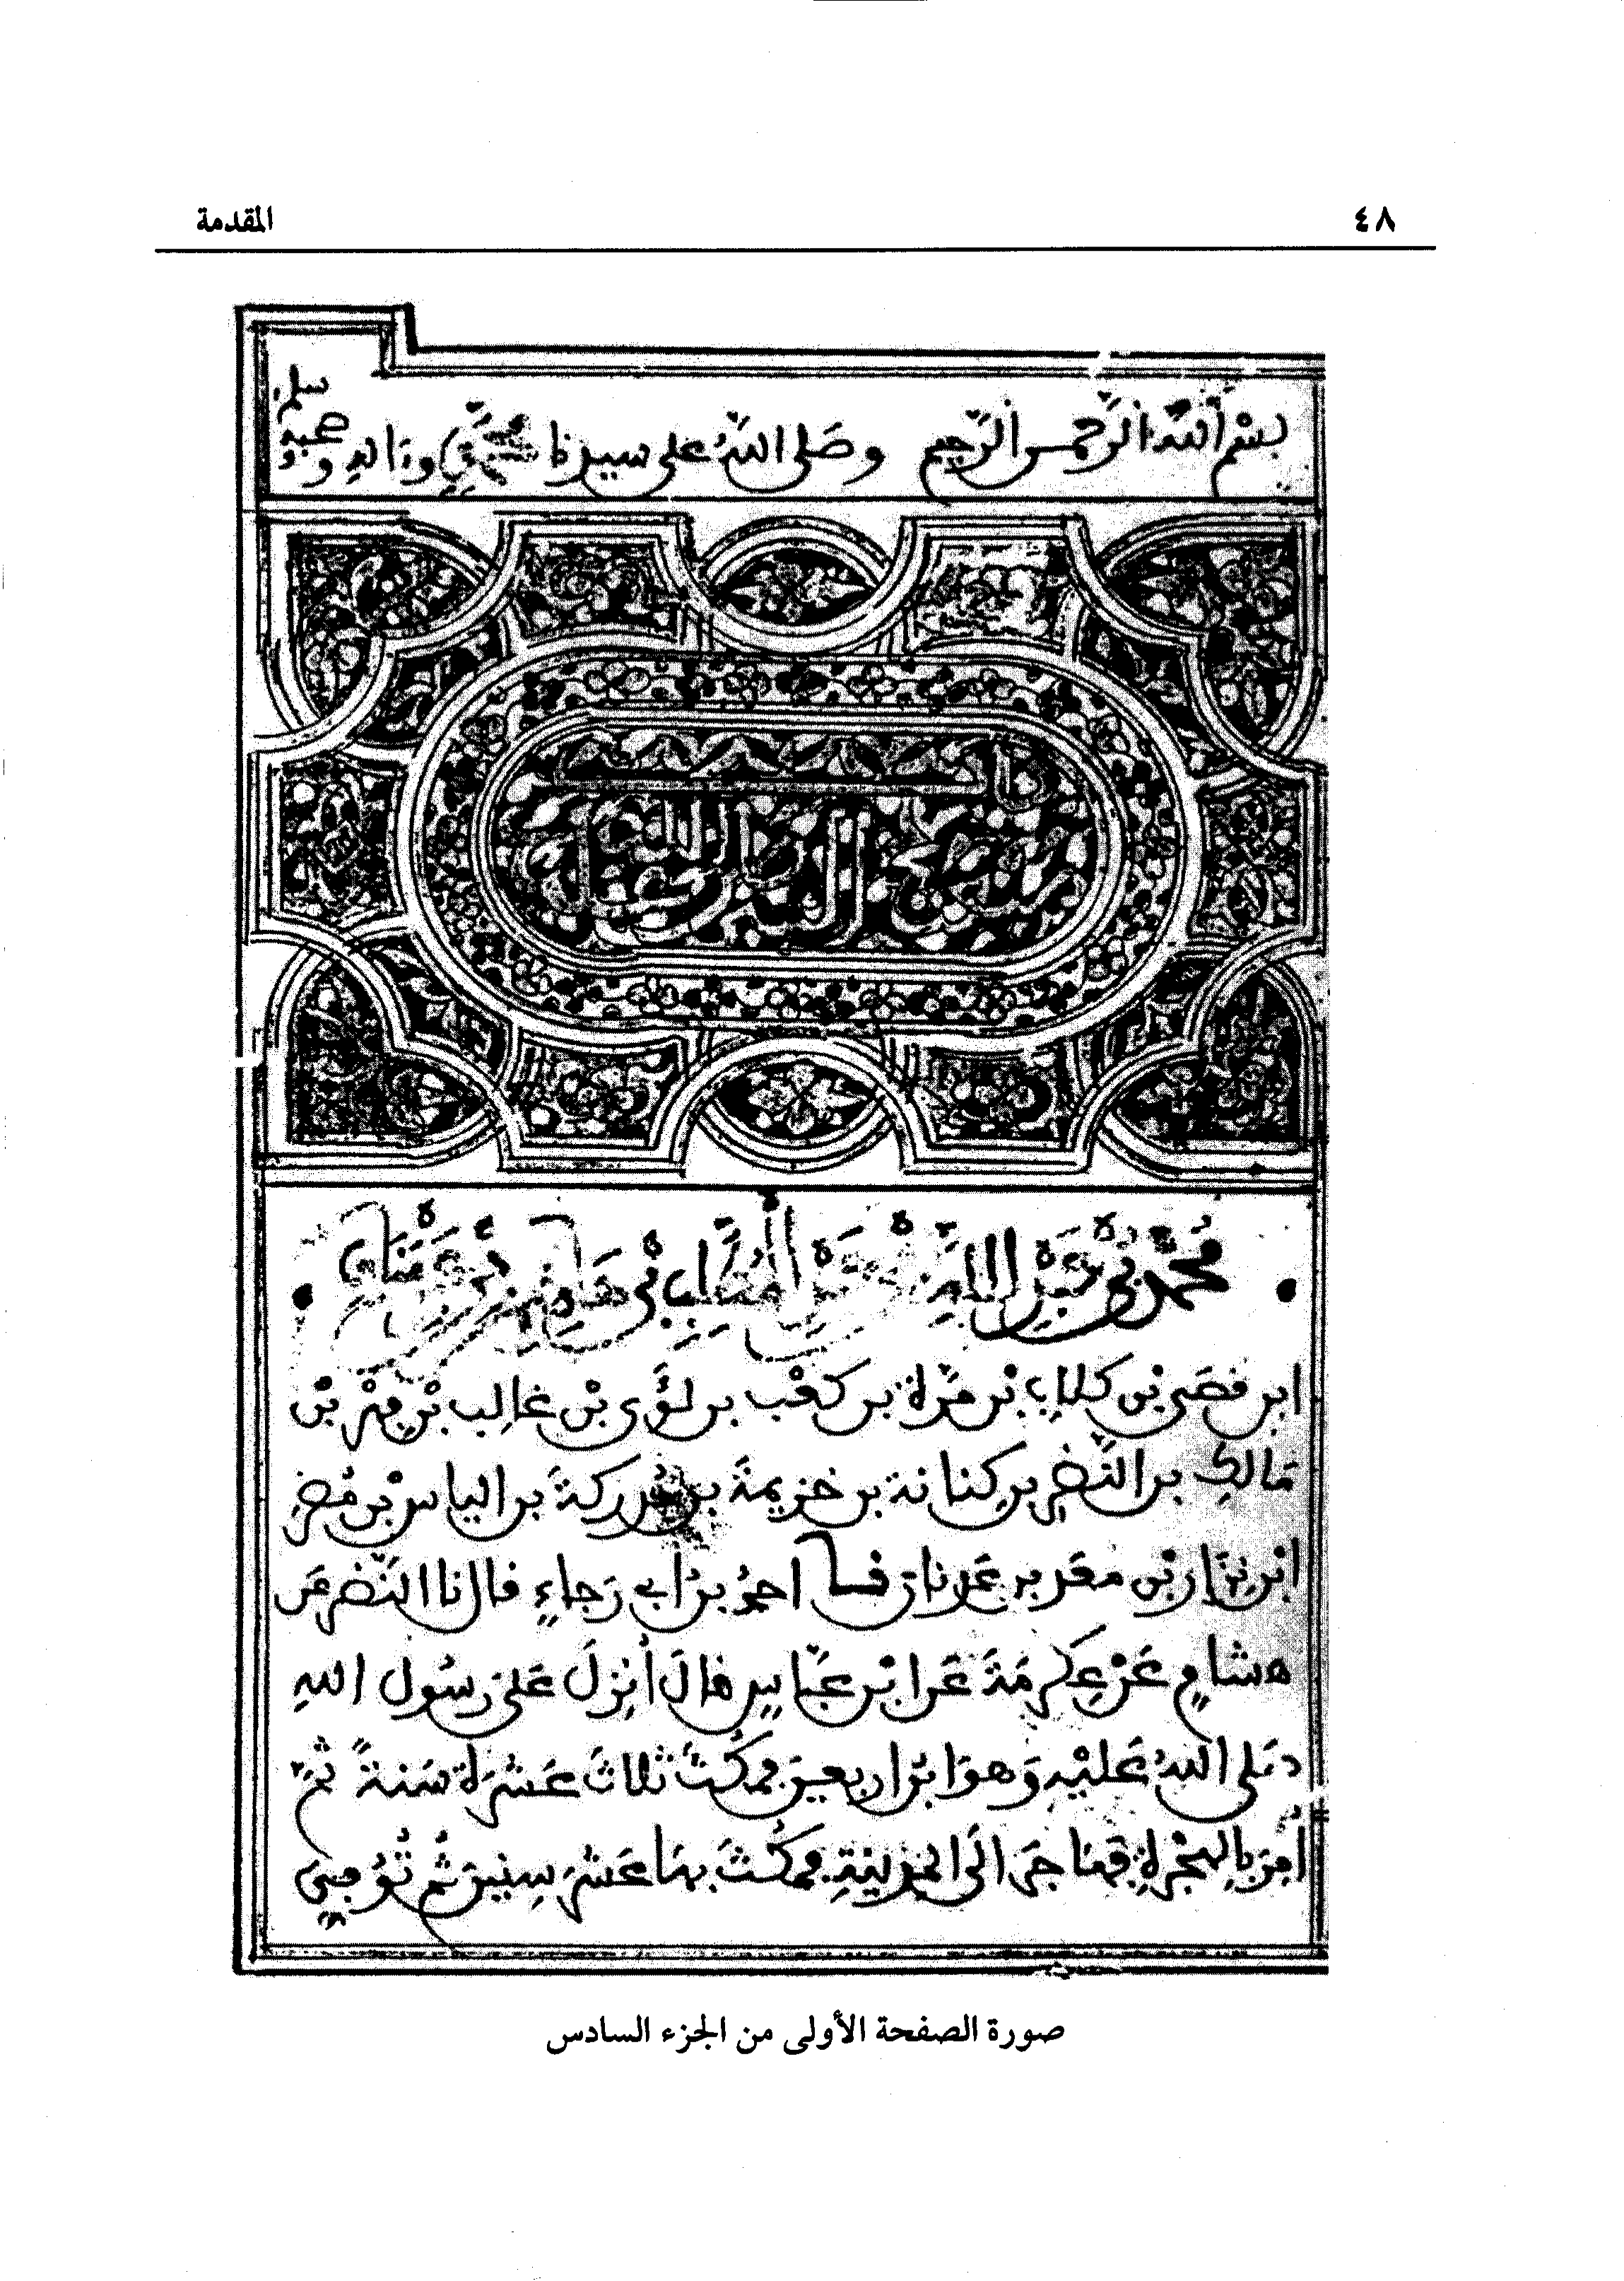 ٤٨ المقدمة
بسْم اللهِ الرَّحْمٰن الرَّحِيم وصَلى اللهُ على سيدنا مُحَمَّدٍ وءاله وصحبه وسلم
باب
مبعث النبي صلى الله عليه
مُحمَّدُ بْنُ عَبْدِ اللهِ بْنِ عَبْدِ المُطَّلِبِ بْنِ هَاشِمِ بْنِ عَبْدِ مَنَافِ
ابن قصَيِّ بْن كِلابِ بْن مُرَّة بن كعْب بن لؤَيّ بْن غالِب بْن فِهْر بْن
مَالكِ بن النَّضر بن كِنانة بن خزيمةَ بن مُدركةَ بن الياس بْن مُضر
ابْن نِزَار بْن مَعَد بن عَدنان قـــا أحمدُ بنُ أبي رَجاءٍ قال نا النَّضر عَن
هشامٍ عَنْ عِكرمَةَ عَن ابْن عَبّاسٍ قالَ أنزِلَ عَلى رَسُول اللهِ
صَلى اللهُ عَليْه وَهوَ ابْن اربعين فمكُثَ ثلاثَ عَشْرة سَنةً ثمَّ
أُمِرَ بالهِجْرةِ فهَاجَرَ الَى المدينةِ فمكُثَ بهَا عَشرَ سِنينَ ثُم تُوُفِيَ
صورة الصفحة الأولى من الجزء السادس